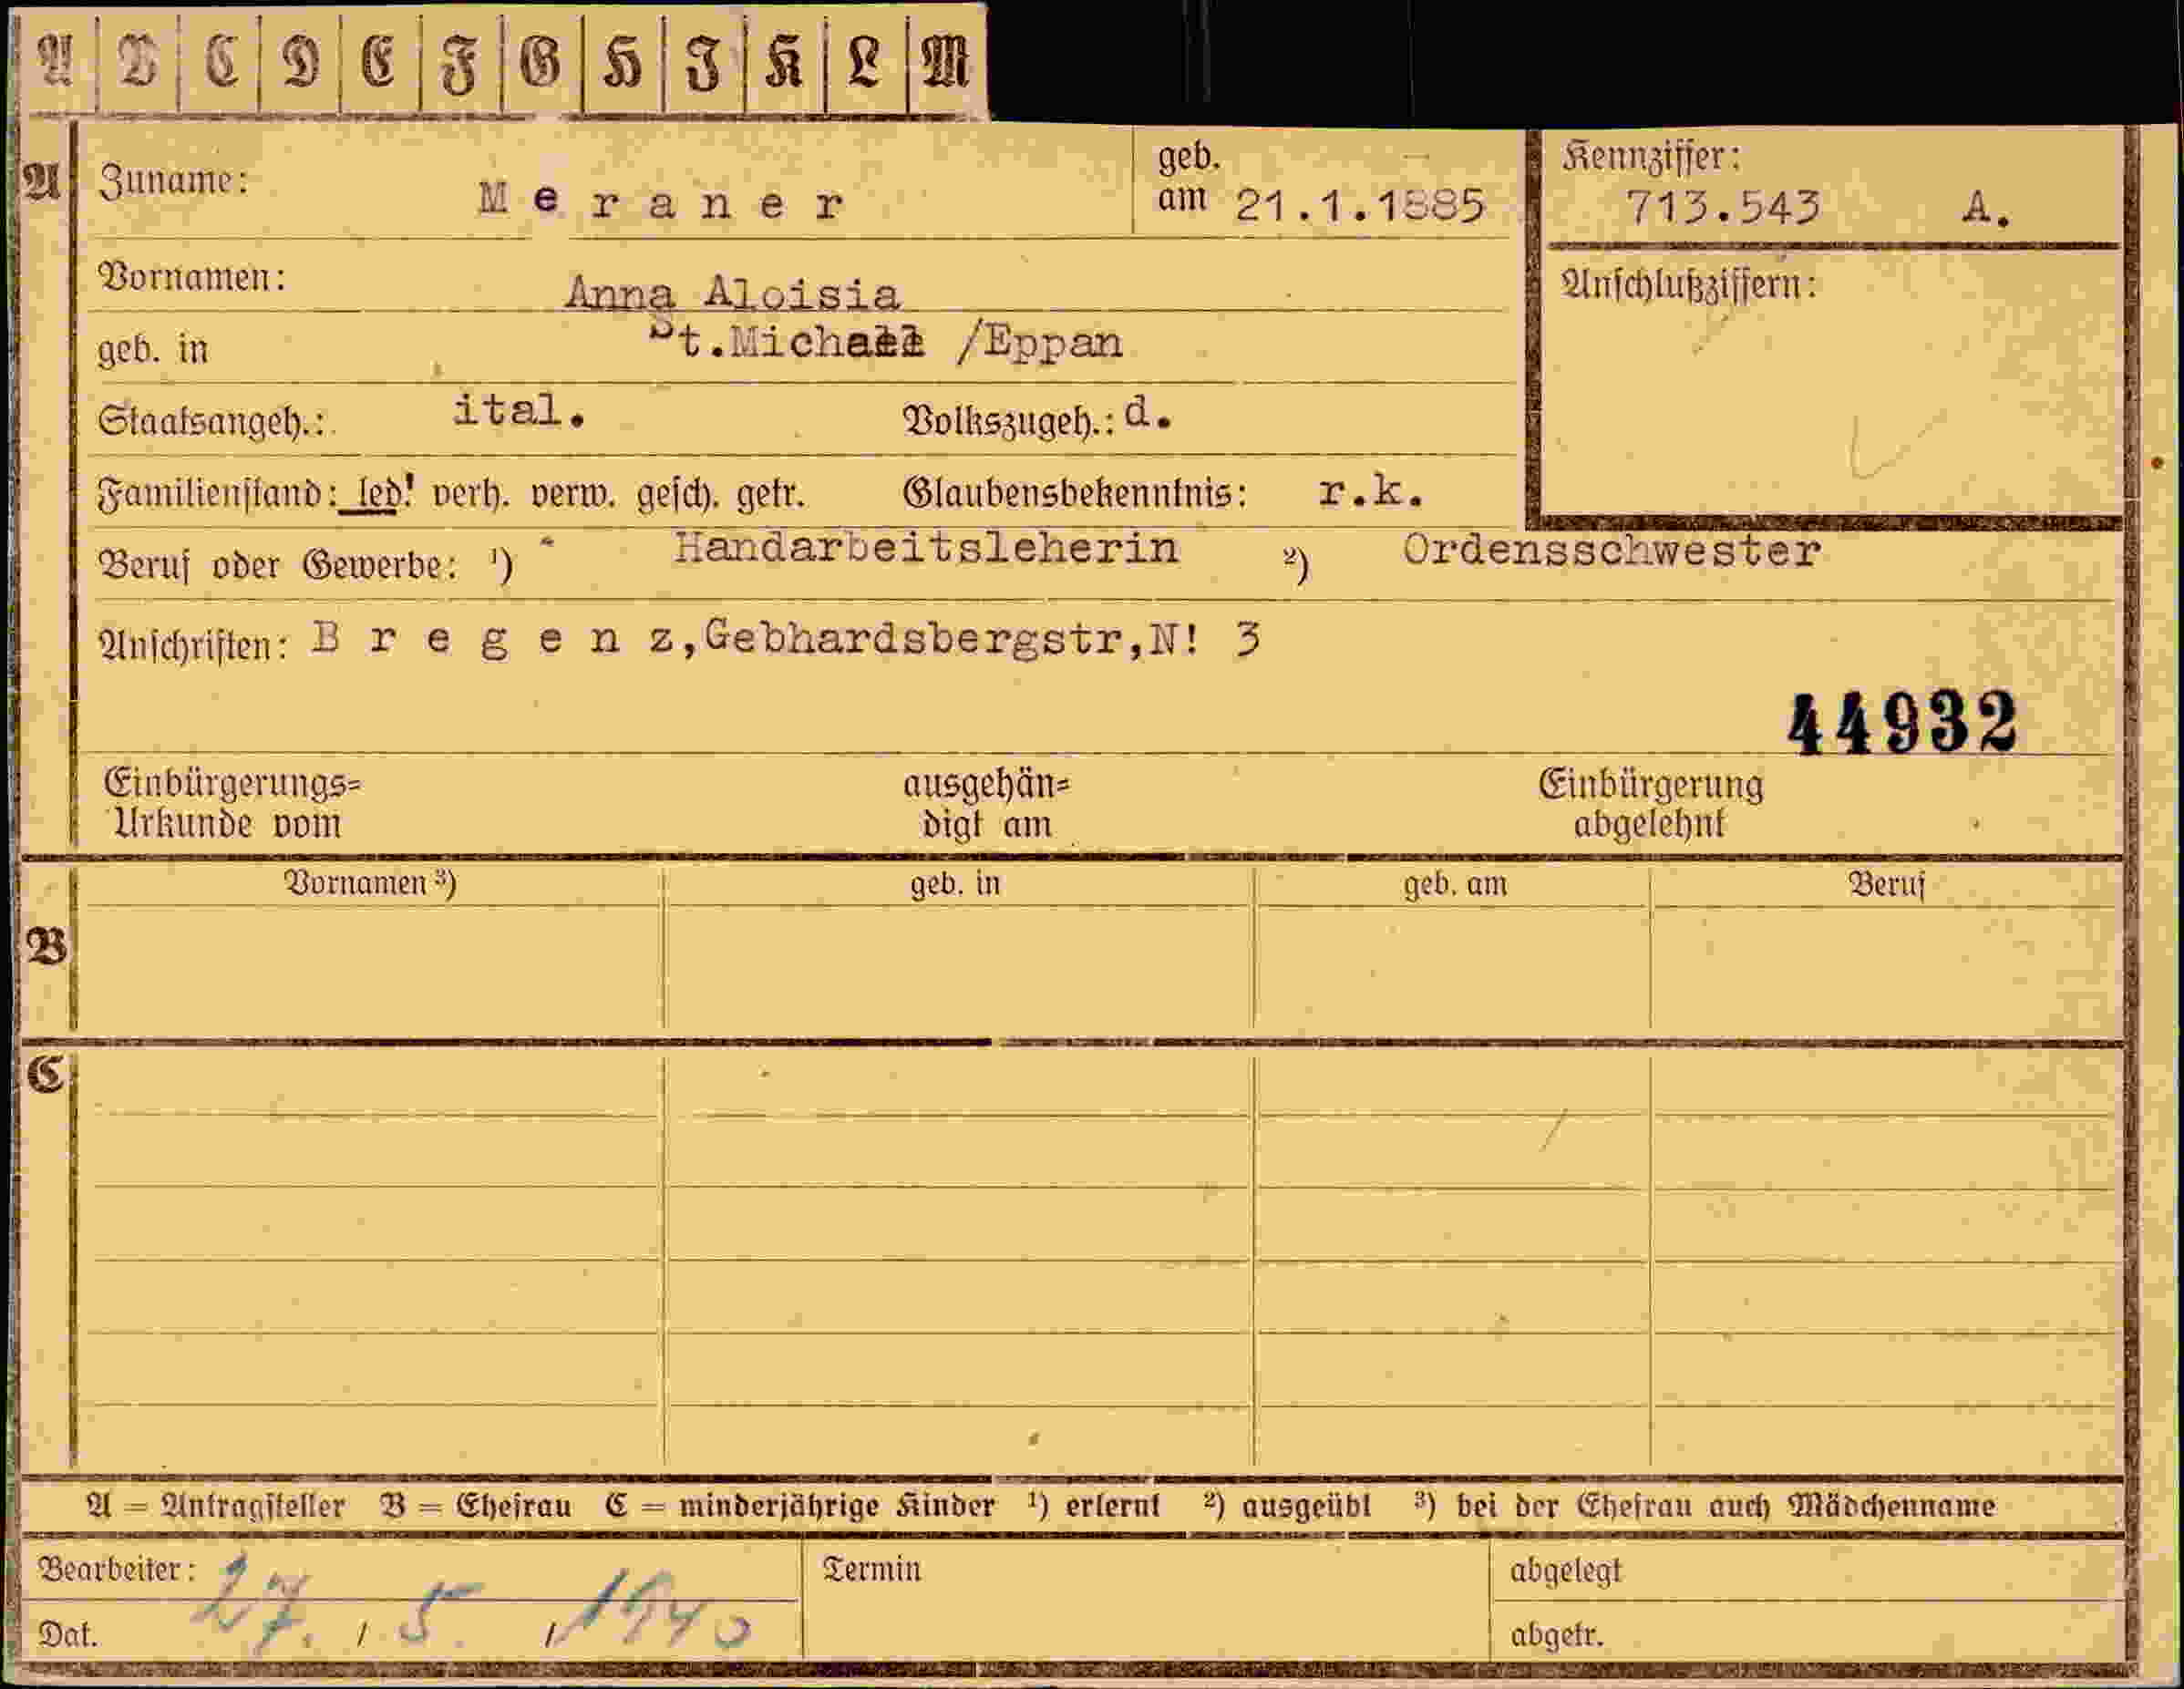 A B C D E F G H J K L M
A Zuname: Meraner geb. am 21.1.1885 Kennziffer: 713.543 A.
Vornamen: Anna Aloisia Anschlußziffern:
geb. in St.Michael /Eppan
Staatsangeh.: ital. Volkszugeh.: d.
Familienstand: led! verh. verw. gesch. getr. Glaubensbekenntnis: r.k.
Beruf oder Gewerbe: ¹) Handarbeitsleherin ²) Ordensschwester
Anschriften: Bregenz,Gebhardsbergstr,N! 3
44932
Einbürgerungs= ausgehän= Einbürgerung
Urkunde vom digt am abgelehnt
Vornamen ³) geb. in geb. am Beruf
B
C
A = Antragsteller B = Ehefrau C = minderjährige Kinder ¹) erlernt ²) ausgeübt ³) bei der Ehefrau auch Mädchenname
Bearbeiter: Termin abgelegt
Dat. 27. / 5. / 1940 abgetr.